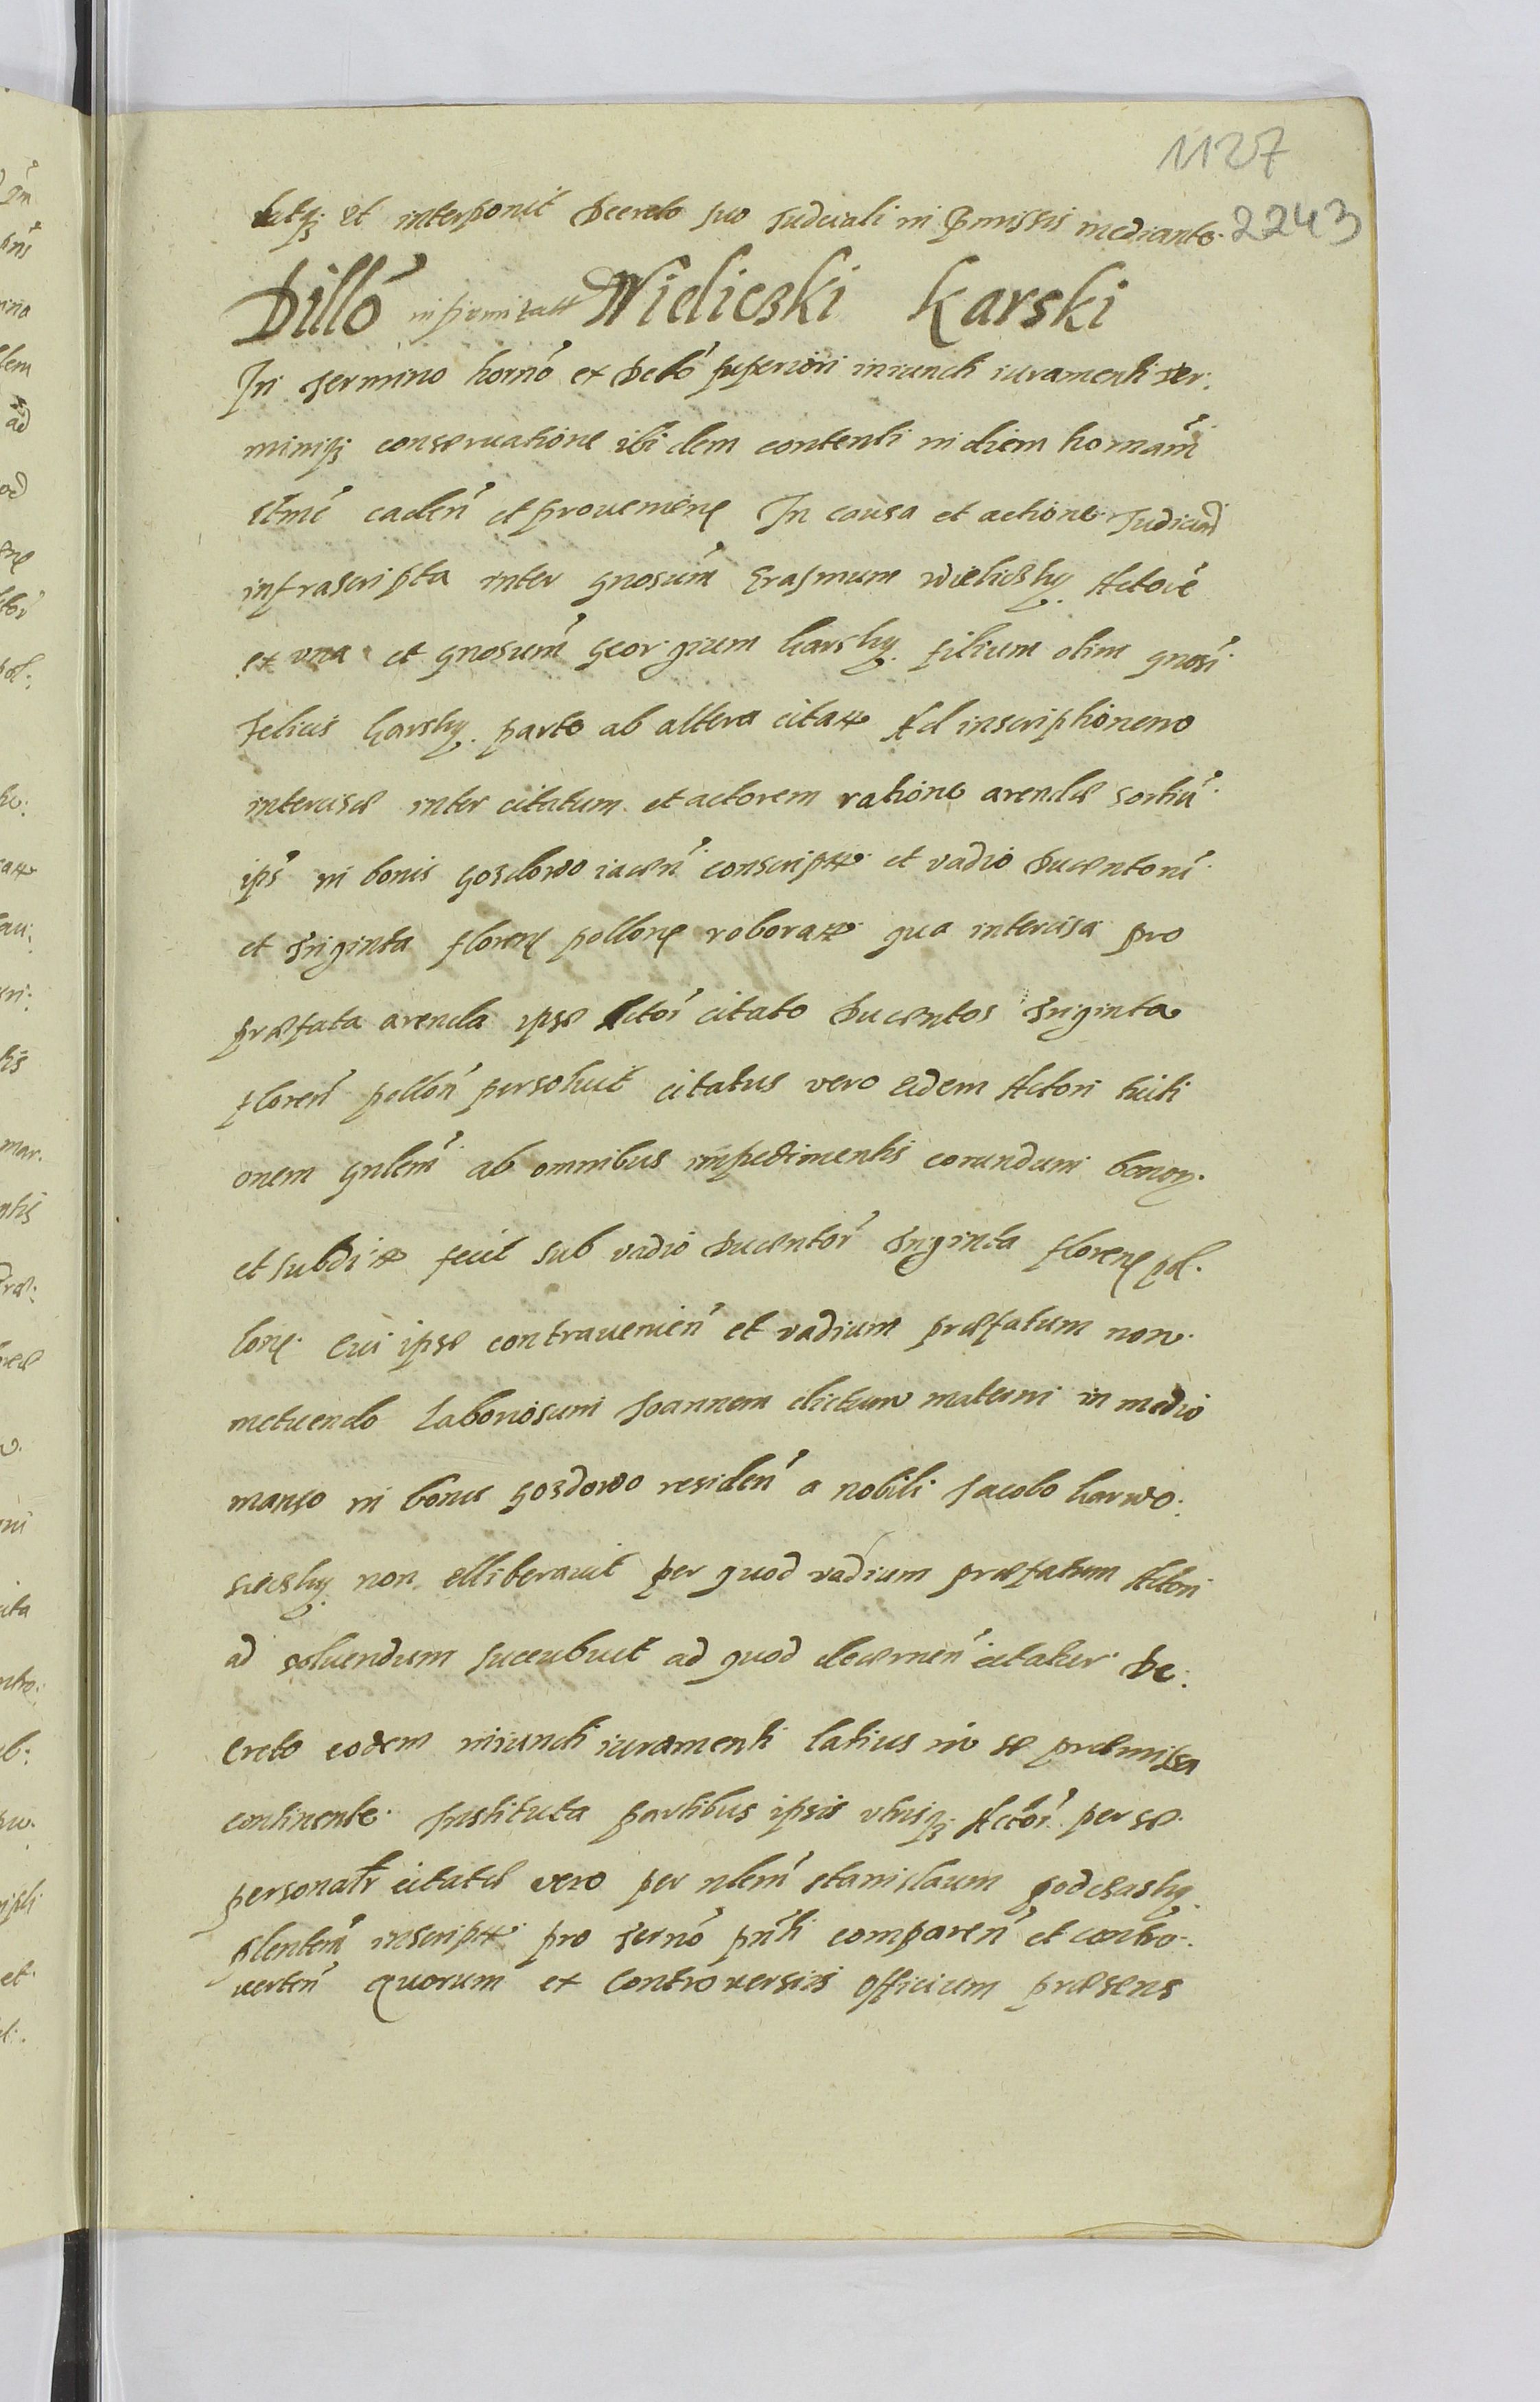 1127
latq3 et interponit Decreto suo Judiciali in Pmissis mediante. 2243
Dillo infirmitatis Wieliczki Karski
In Termino horno ex Decto superiori iniuncti iuramenti ter:
miniq3 conservatione ibidem contenti in diem hornam
caden et provenien In causa et actione Judicial
infrascripta inter gnosum Erasmum Wieliczky Actore
ex vna et gnosum Georgium karsky filium olim gnosi
Felicis karsky parte ab altera citat Ad inscriptionem
intercisae inter citatum et actorem ratione arendae sortiu
ips in bonis gozdowo iacen conscript et vadio Ducentoru
et Triginta floren pollon roborat qua intercisa pro
praefata arenda ipse Actor citato Ducentos Triginta
floren pollon persoluit citatus vero eidem Actori tuiti
onem gnlem ab omnibus impedimentis eorundum bonor
et subdit fecit sub vadio Ducentor Triginta floren pol:
lon. Cui ipse contravenien et vadium praefatum non
metuendo Laboriosum Joannem dictum in medio
manso in bonis gozdowo residen a nobili Jacobo karwo:
siecky non elliberavit per quod vadium praefatum Actori
ad soluendum succubuit ad quod decernen citatur De:
creto eodem iniuncti iuramenti latius in se praemissa
continente. Instituta partibus ipsis vtrisq3 Actor per se
personalr citatus vero per nlem Stanislaum
plentem inscript pro Terno pnti comparen et contro:
verten Quorum ex Controversiis Officium praesens